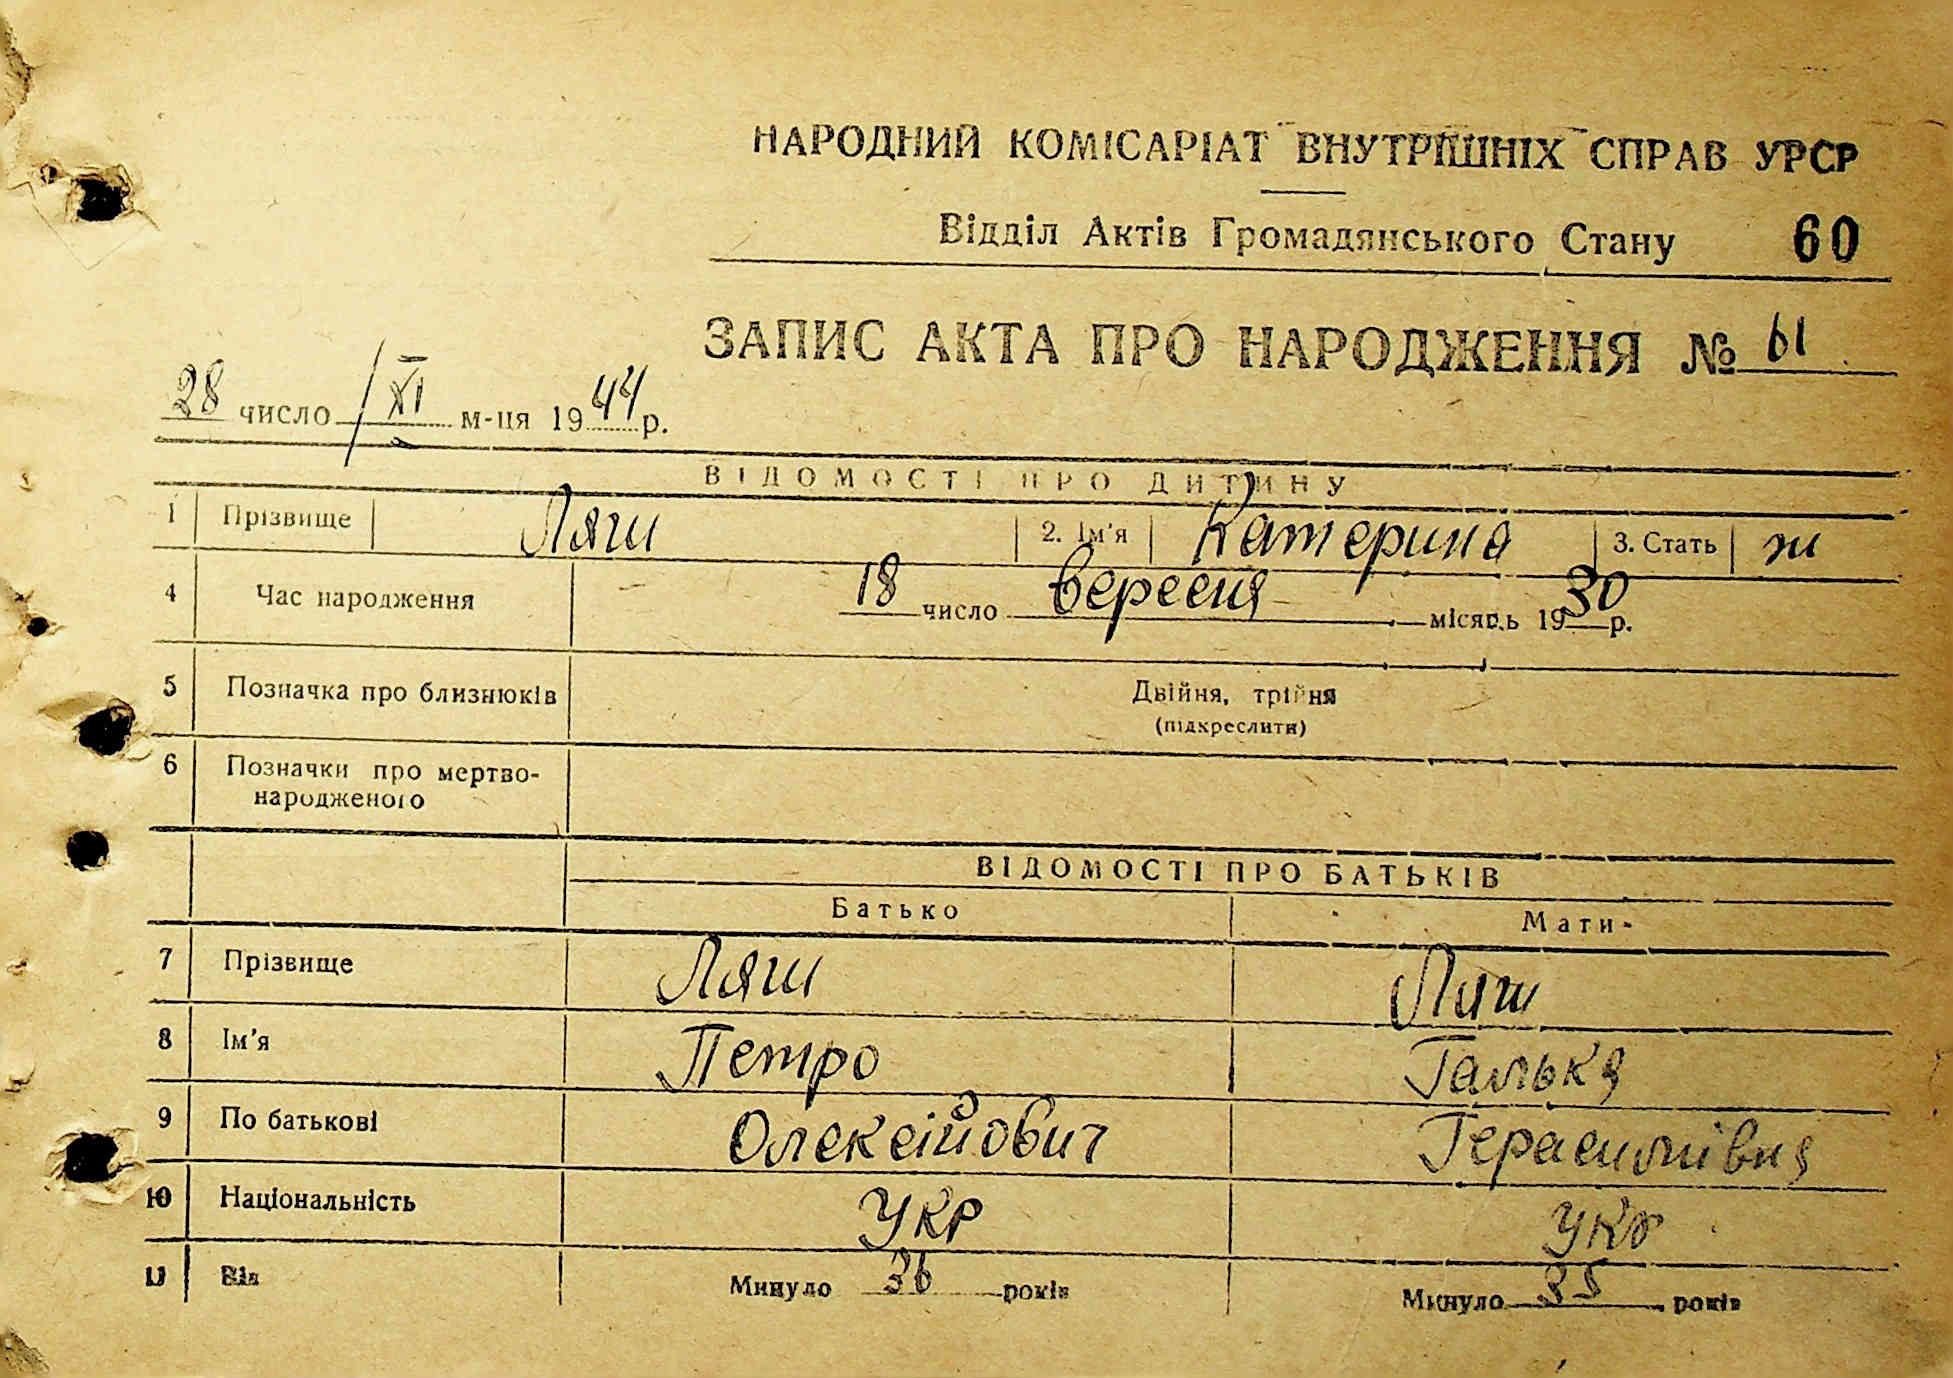 НАРОДНИЙ КОМІСАРІАТ ВНУТРІШНІХ СПРАВ УРСР
Відділ Актів Громадянського Стану 60
ЗАПИС АКТА ПРО НАРОДЖЕННЯ № 61
28 число XI м-ця 1944 р.
ВІДОМОСТІ ПРО ДИТИНУ
1 Прізвище Ляш 2. Ім'я Катерина 3. Стать ж
4 Час народження 18 число вересня місяць 1930 р.
5 Позначка про близнюків Двійня, трійня
(підкреслити)
6 Позначки про мертво-
народженого
ВІДОМОСТІ ПРО БАТЬКІВ
Батько Мати
7 Прізвище Ляш Ляш
8 Ім'я Петро Галька
9 По батькові Олексійович Герасимівна
10 Національність УКР УКР
11 Вік Минуло 36 років Минуло 35 років